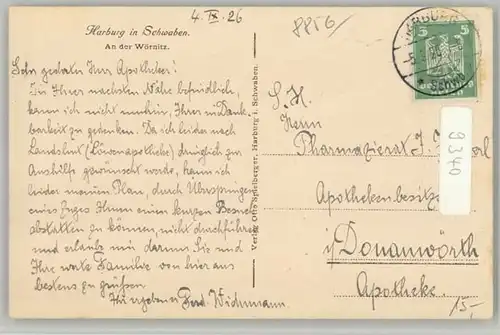 4. IX. 26
8856
Harburg in Schwaben.
An der Wörnitz.
Sehr geehrter Herr Apotheker!
In Ihrer nächsten Nähe befindlich,
kann ich nicht umhin, Ihrer in Dank-
barkeit zu gedenken. Da ich leider nach
Landshut (Löwenapotheke) dringlich zur
Aushilfe gewünscht werde, kann ich
leider meinen Plan, durch Überspringen
eines Zuges Ihnen einen kurzen Besuch
abstatten zu können, nicht durchführen
und erlaube mir darum Sie und
Ihre werte Familie von hier aus
bestens zu grüßen.
Ihr ergebener Ferd. Widmann.
Verlag Otto Spielberger, Harburg i. Schwaben.
HARBURG
5
5
S. H.
Herrn
Pharmazierat J.
Apothekenbesitz
i/ Donauwörth
Apotheke.
9340
15,-